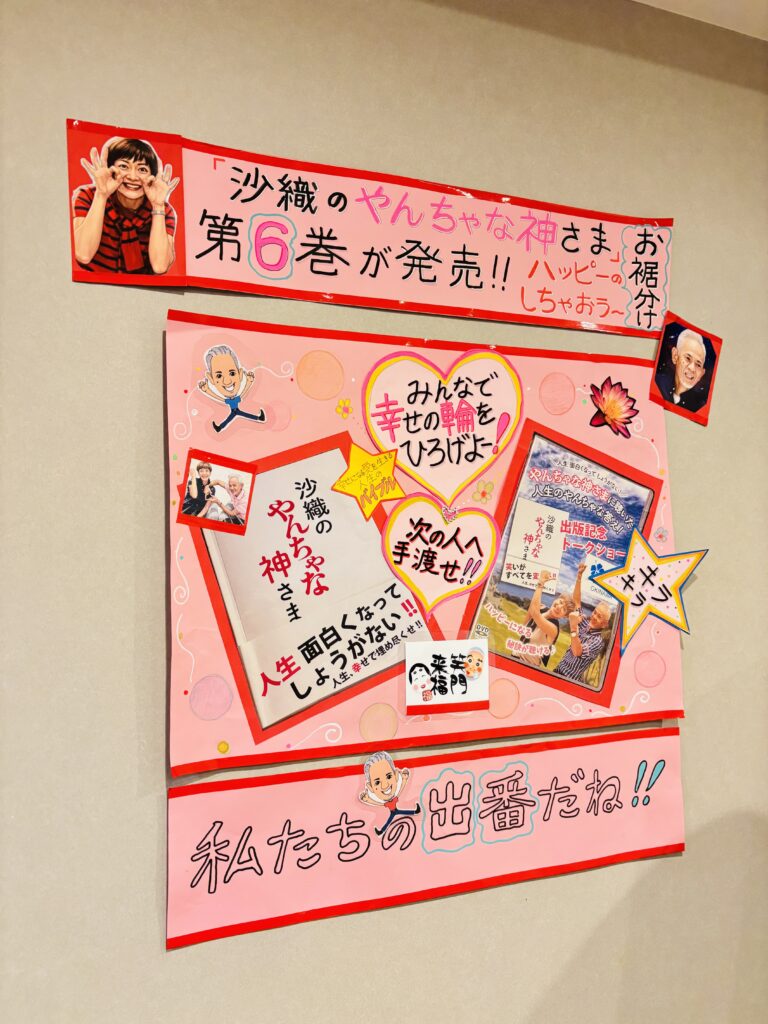 「沙織のやんちゃな神さま」
第6巻が発売!!
ハッピーの
お裾分け
しちゃおう〜
みんなで
幸せの輪を
ひろげよー!
人生の
バイブル
沙織の
やんちゃな
神さま
人生 面白くなって
しょうがない!!
人生、幸せで埋め尽くせ!!
次の人へ
手渡せ!!
人生 面白くなってしょうがない!
人生のやんちゃな
出版記念
トークショー
沙織の
やんちゃな
神さま
笑いが
すべてを
キラ
キラ
ハッピーになる
秘訣が聴ける♪
DVD
笑門
来福
福
私たちの出番だね!!